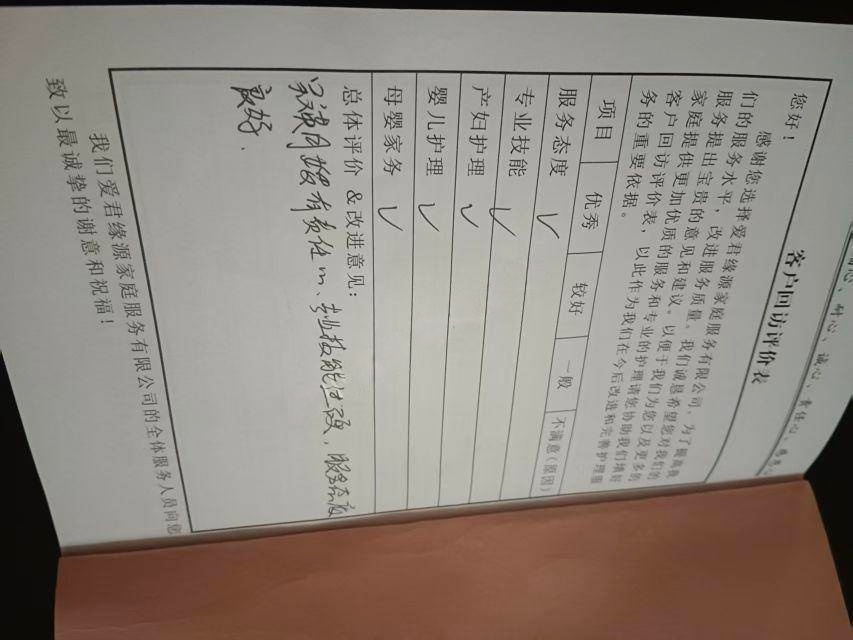 耐心、诚心、责任心、
客户回访评价表
您好！
感谢您选择爱君缘源家庭服务有限公司。为了提高我
们的服务水平，改进服务质量。我们诚恳希望您对我们的
服务提出宝贵的意见和建议。以便于我们为您以及更多的
家庭提供更加优质的服务和专业的护理请您协助我们填好
客户回访评价表，以此作为我们在今后改进和完善护理服
务的重要依据。
项目 优秀 较好 一般 不满意（原因）
服务态度 ✓
专业技能 ✓
产妇护理 ✓
婴儿护理 ✓
母婴家务 ✓
总体评价 &改进意见：
有责任心、专业技能过硬，服务态度
良好.
我们爱君缘源家庭服务有限公司的全体服务人员向您
致以最诚挚的谢意和祝福！